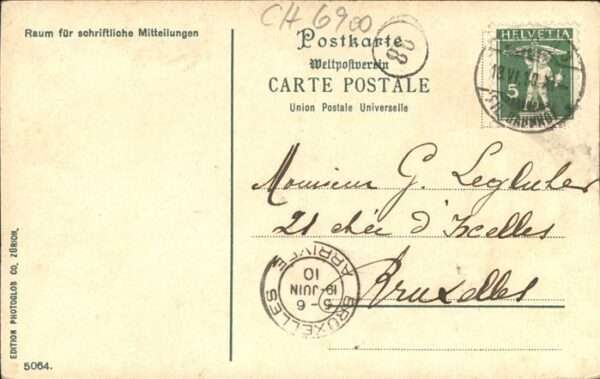 CH 6900
Raum für schriftliche Mitteilungen
Postkarte
Weltpostverein
CARTE POSTALE
Union Postale Universelle
88
HELVETIA
5
Monsieur G.
21 chée d'Ixelles
Bruxelles
BRUXELLES
ARRIVEE
6-6
19 JUIN
10
EDITION PHOTOGLOB CO, ZÜRICH.
5064.